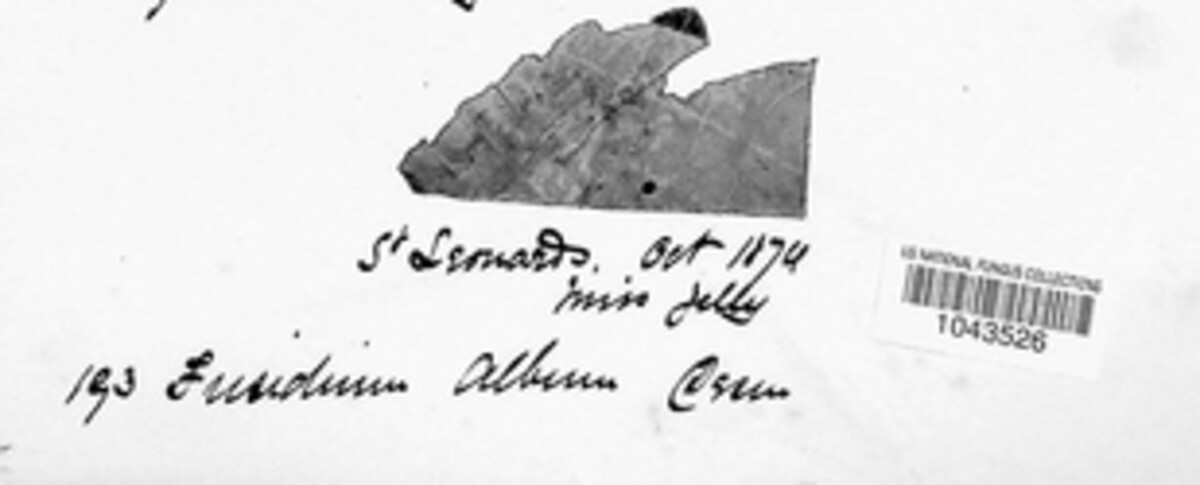 St Leonards. Oct 1874
Miss Jelly
US NATIONAL FUNGUS COLLECTIONS
1043526
193 Fusidium Album